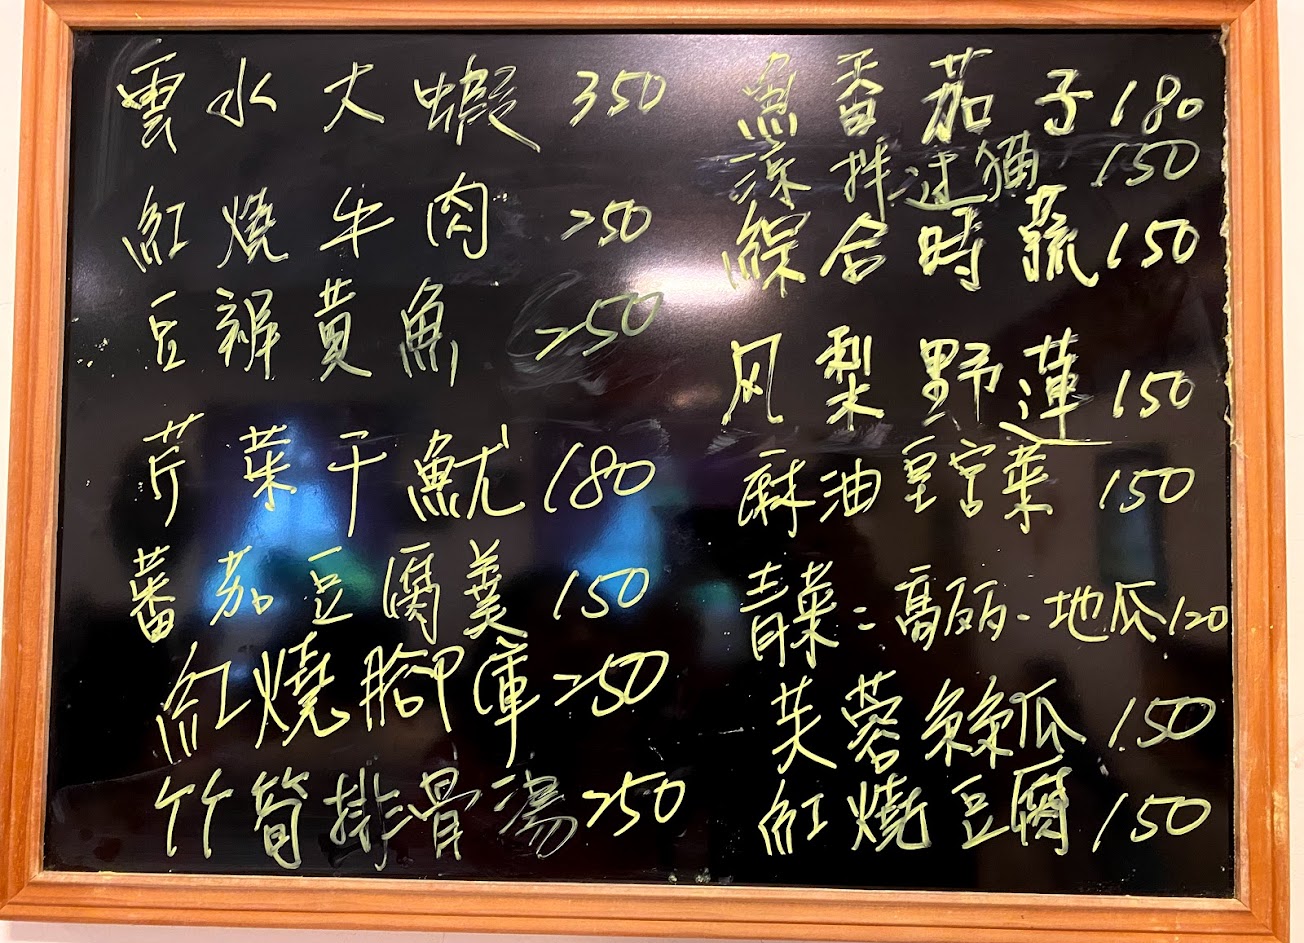 雲水大蝦 350
紅燒牛肉 250
豆瓣黃魚 250
芹菜干魷 180
蕃茄豆腐羹 150
紅燒腳庫 250
竹筍排骨湯 250
魚香茄子 180
涼拌过猫 150
綜合時蔬 150
风梨野蓮 150
麻油皇宮菜 150
青菜:高丽-地瓜 120
芙蓉絲瓜 150
紅燒豆腐 150